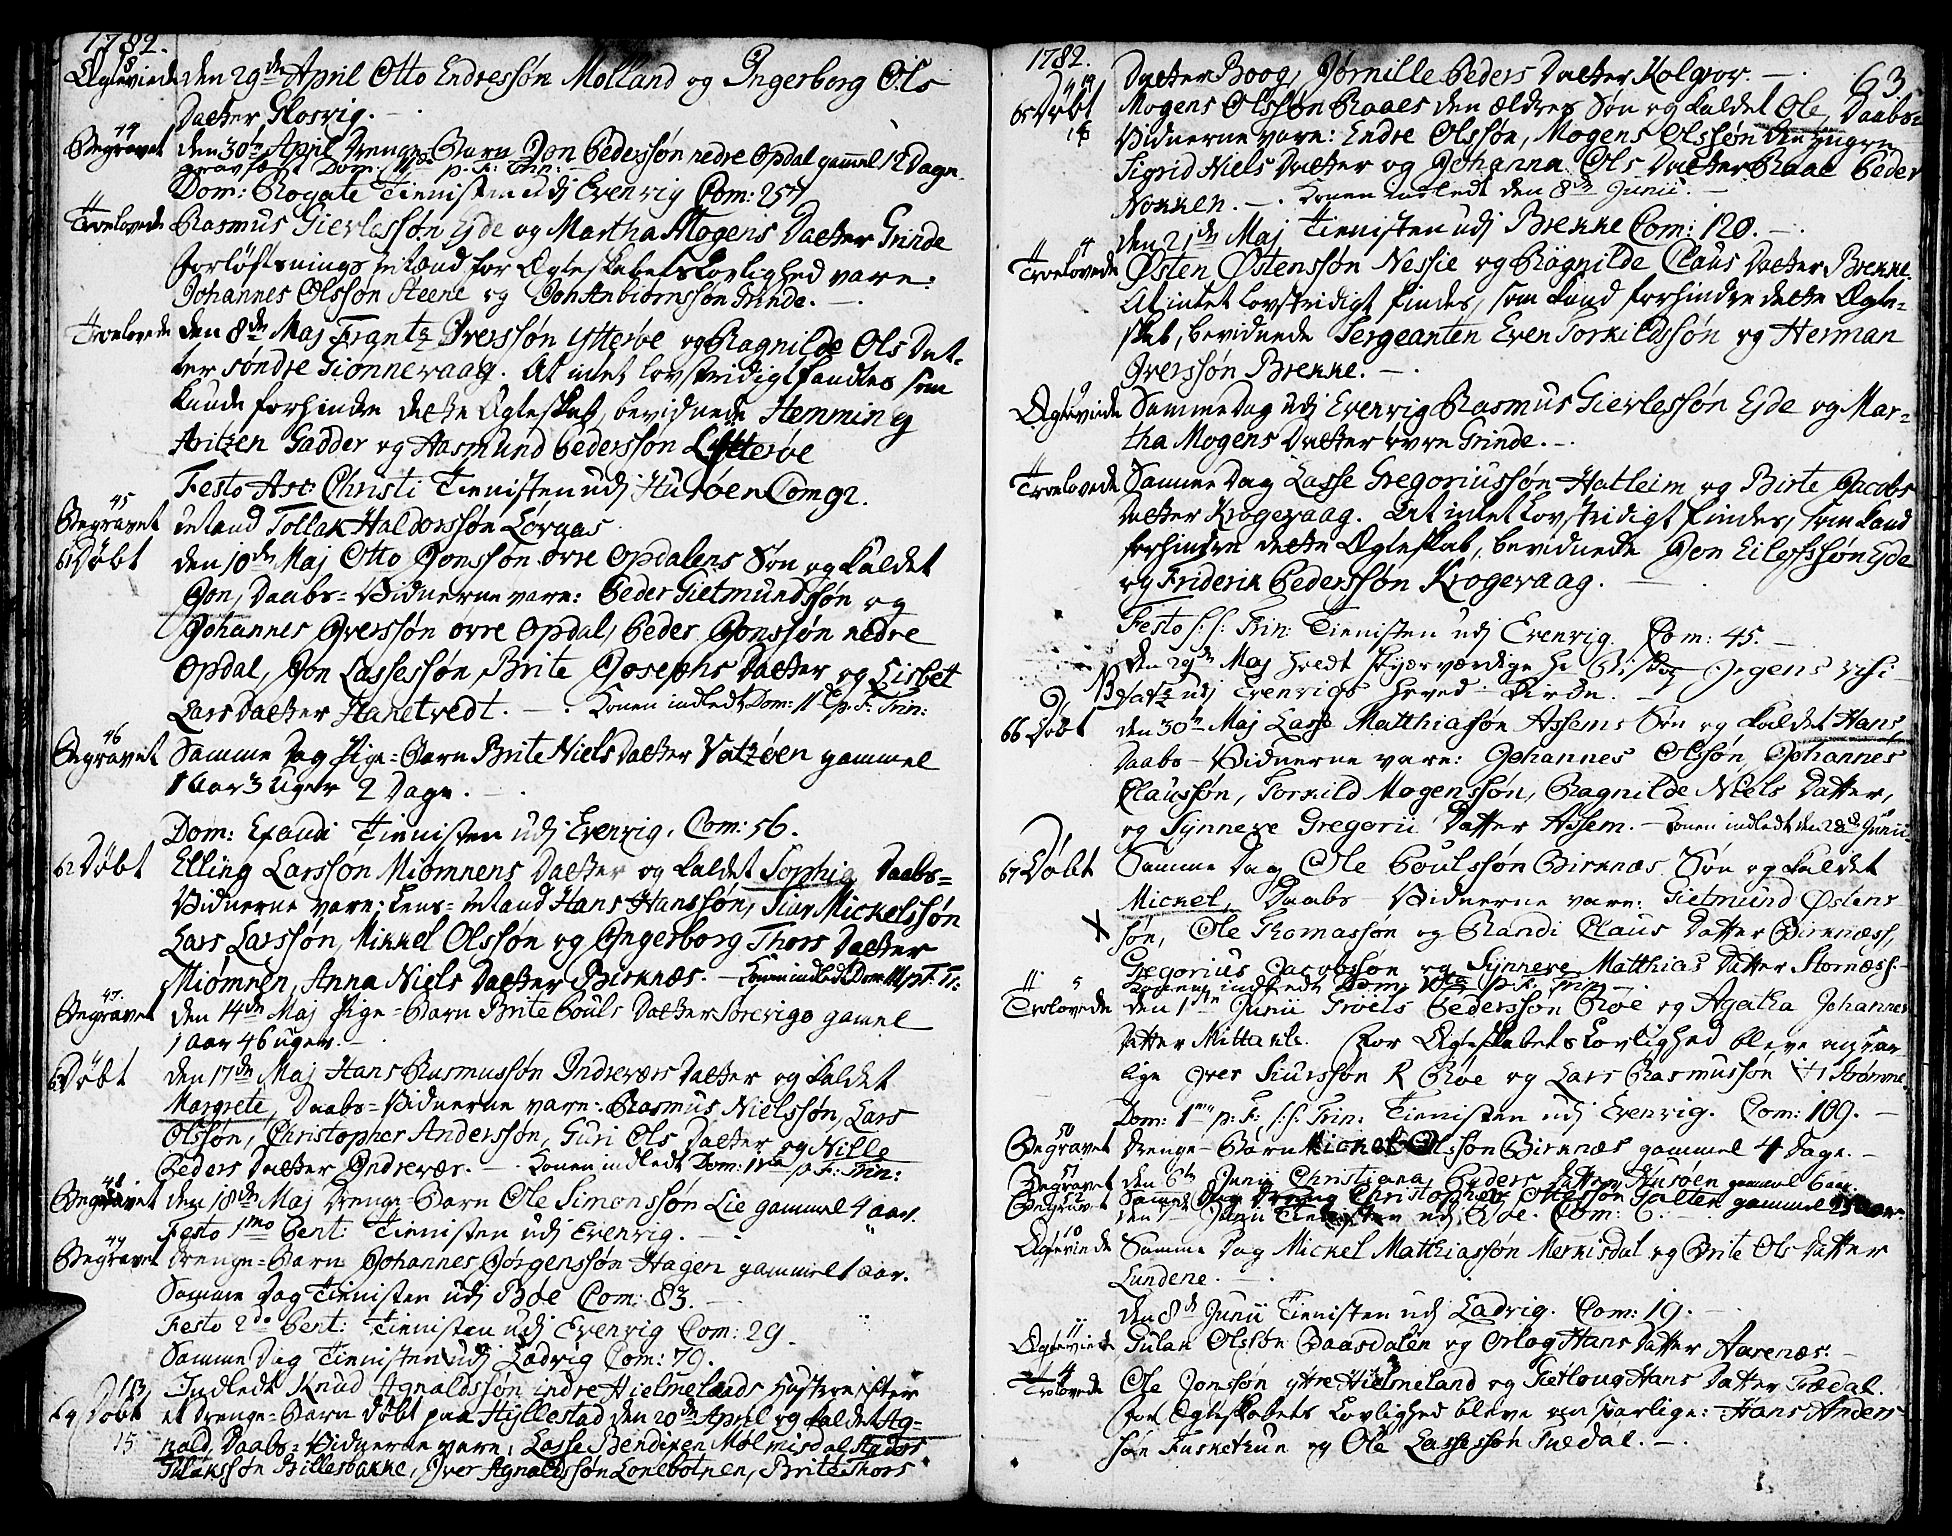 1782.
8
Ægteviede den 29de April Otto Endressøn Molland og Ingerborg Ols
Datter Glosvig. —
44
Begravet den 30te April Drenge-Barn Jon Pederssøn nedre Opdal gammel 12 Dage
Dom: Rogate Tienisten udj Evenvig Com: 254
Troelovede Rasmus Gierlessøn Eyde og Martha Mogens Datter Grinde
Forløftningsmænd for Ægteskabets Lovlighed vare:
Johannes Olssøn Steene og Jon Anbiørnssøn Grinde. —
Troelovede den 8de Maj Frantz Iverssøn Ytterøe og Ragnilde Ols Dat-
ter søndre Gionnevaag. At intet lovstridigt fandtes som
kunde forhindre dette Ægteskab, bevidnede Hemming
Hitzen Gadder og Aasmund Pederssøn Ytterøe
Festo Asc: Christi Tienisten udj Husøen Com 92.
45
Begravet Tollak Haldorssøn Lørnaas.
61 Døbt den 10de Maj Otto Jonssøn øvre Opdalens Søn og kaldet
Jon, Daabs-Vidnerne vare: Peder Gietmundssøn og
Johannes Iverssøn øvre Opdal, Peder Jonssøn nedre
Opdal, Jon Lassessøn, Brite Josephs Datter og Lisbet
Lars Datter Hanetvedt. — Konen indledt Dom: 11te p: F: Trin:
46
Begravet Samme Dag Pige-Barn Brite Niels Datter Vatzøen gammel
1 Aar 3 Uger 2 Dage.
Dom: Exaudi Tienisten udj Evenvig. Com: 56.
62 Døbt Elling Larssøn Miømnens Datter og kaldet Sophia Daabs-
Vidnerne vare: Hans Hanssøn, Siur Mickelssøn
Lars Larssøn, Mikkel Olssøn og Ingerborg Thors Datter
Miømnen, Anna Niels Datter Birknæs. — Konen indledt Dom
47.
Begravet den 14de Maj Pige-Barn Brite Pouls Datter Sørevige gamel
1 Aar 46 uger. —
Døbt den 17de Maj Hans Rasmussøn Indreværs Datter og kaldet
Margrete, Daabs-Vidnerne vare: Rasmus Nielssøn, Lars
Olssøn, Christopher Anderssøn, Guri Ols Datter og Nille
Peders Datter Indrevær. — Konen indledt Dom: p: F: Trin:
48
Begravet den 18de Maj Drenge-Barn Ole Simonssøn Lie gammel 4 aar.
Festo 1mo Pent: Tienisten udj Evenvig. —
49
Begravet Drenge-Barn Johannes Jørgenssøn Hagen gammel 1 aar.
Samme Dag Tienisten udj Bøe Com: 83.
Festo 2do Pent: Tienisten udj Evenvig Com: 29
Samme Dag Tienisten udj Ladvig Com: 79.
Indledt Knud Agnaldssøn indre Hielmelands Hustrue efter
64 Døbt et Drenge-Barn døbt paa Hyllestad den 20de April og kaldet Ag-
15 nald, Daabs-Vidnerne vare: Lasse Bendixen Mølmisdal
Billesbakke, Iver Agnaldssøn Lonebotnen, Brite Thors
1782.
63
Datter Boog, Pernille Peders Datter Kolgrov. —
65 Døbt Mogens Olssøn Raaes den ældres Søn og kaldet Ole, Daabs-
16 Vidnerne vare: Endre Olssøn, Mogens Olssøn den yngre
Sigrid Niels Datter og Johanna Ols Datter Raae Peder
Nokken. — Konen indledt den 8de Junii. —
den 21de Maj Tienisten udj Brekke Com: 120. —
4
Troelovede Østen Østenssøn Nessie og Ragnilde Claus Datter Brekke.
At intet lovstridigt findes, som kand forhindre dette Ægte-
skab, bevidnede Sergeanten Even Torkildssøn og Herman
Iverssøn Brekke. —
9
Ægteviede Samme Dag udj Evenvig Rasmus Gierlessøn Eyde og Mar-
tha Mogens Datter øvre Grinde. —
Troelovede Samme Dag Lasse Gregoriussøn Hatleim og Birte Jacobs
Datter Krogevaag. At intet lovstridigt findes, som kand
forhindre dette Ægteskab, bevidnede Jon Eilefssøn Eyde
og Friderik Pederssøn Krogevaag. —
Festo s: s: Trin: Tienisten udj Evenvig. Com: 45. —
den 29de Maj holdt velærværdige Hr Biskop Irgens Visi-
NB tatz udj Evenvigs Hoved-Kirke. —
66 Døbt den 30te Maj Lasse Matthiassøn Assems Søn og kaldet Hans
Daabs-Vidnerne vare: Johannes Olssøn, Johannes
Claussøn, Torkild Mogenssøn, Ragnilde Niels Datter,
og Synneve Gregorii Datter Assem. — Konen indledt den 28de Junii
67 Døbt Samme Dag Ole Poulssøn Birknæs Søn og kaldet
Mickel, Daabs-Vidnerne vare: Gietmund Østens
X søn, Ole Thomassøn og Randi Claus Datter Birknæss,
Gregorius Jacobssøn og Synneve Matthias Datter Stornæss. —
Konen indledt Dom: p: F: Trin —
5
Trolovede den 1ste Junii Troels Pederssøn Bøe og Agatha Johannes
Datter Mittækle. For Ægteskabets Lovlighed bleve ansvar
lige Iver Siurssøn Bøe og Lars Rasmussøn Strømme.
Dom: 1ma p: F: s: s: Trin: Tienisten udj Evenvig. Com: 109. —
50
Begravet Drenge-Barn Mickel Olssøn Birknæs gammel 4 Dage. —
51
Begravet den 6te Junii Christiana Peders Datter Husøen gammel 6 aar.
52
Begravet Samme Dag Dreng Christopher Ottessøn Galten gammel
Junii Tienisten udj Bøe. Com: 6.
10
Ægteviede Samme Dag Mickel Matthiassøn Merkisdal og Brite Ols Datter
Lundene. —
den 8de Junii Tienisten udj Ladvig. Com: 19. —
11
Ægteviede Gulak Olssøn Baasdalen og Orlog Hans Datter Aarenæs. —
Trolovede Ole Jonssøn ytre Hielmeland og Gietloug Hans Datter Tædal.
For Ægteskabets Lovlighed bleve ansvarlige: Hans Anders
søn Fuskethun og Ole Lassessøn Suedal. —